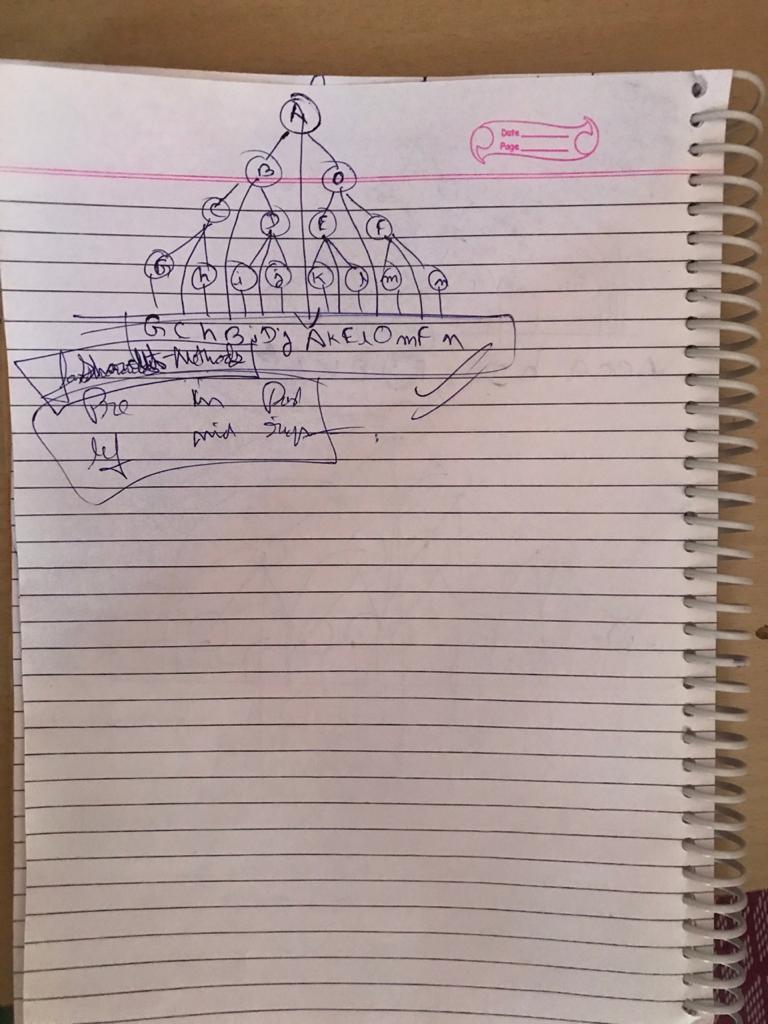 A
Date
Page
B O
C D E F
G h i j k l m n
G C h B i D j A k E l O m F n
Methods
Pre In Post
mid